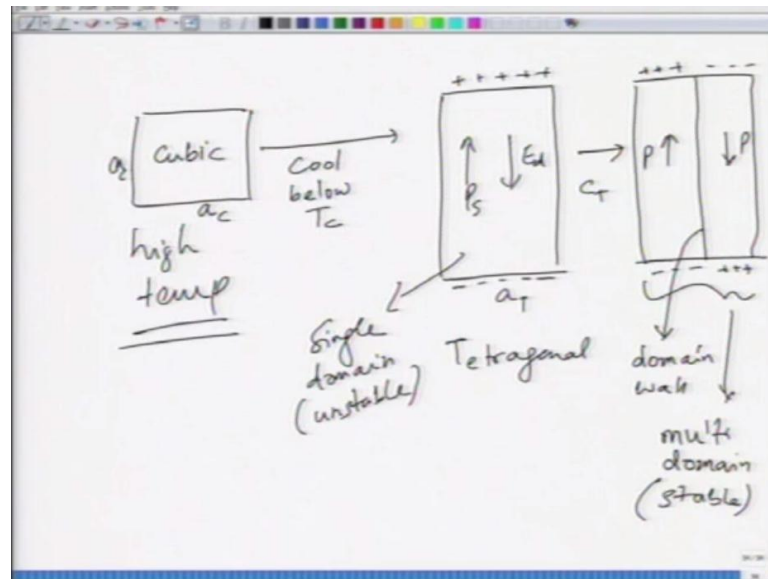 Cubic
a_c
a_c
high
temp
Cool
below
T_c
+ + + + +
P_s
E_d
- - - - - -
a_T
C_T
Single
domain
(unstable)
Tetragonal
+++ - - -
P
P
- - - - +++
domain
wall
multi
domain
(stable)